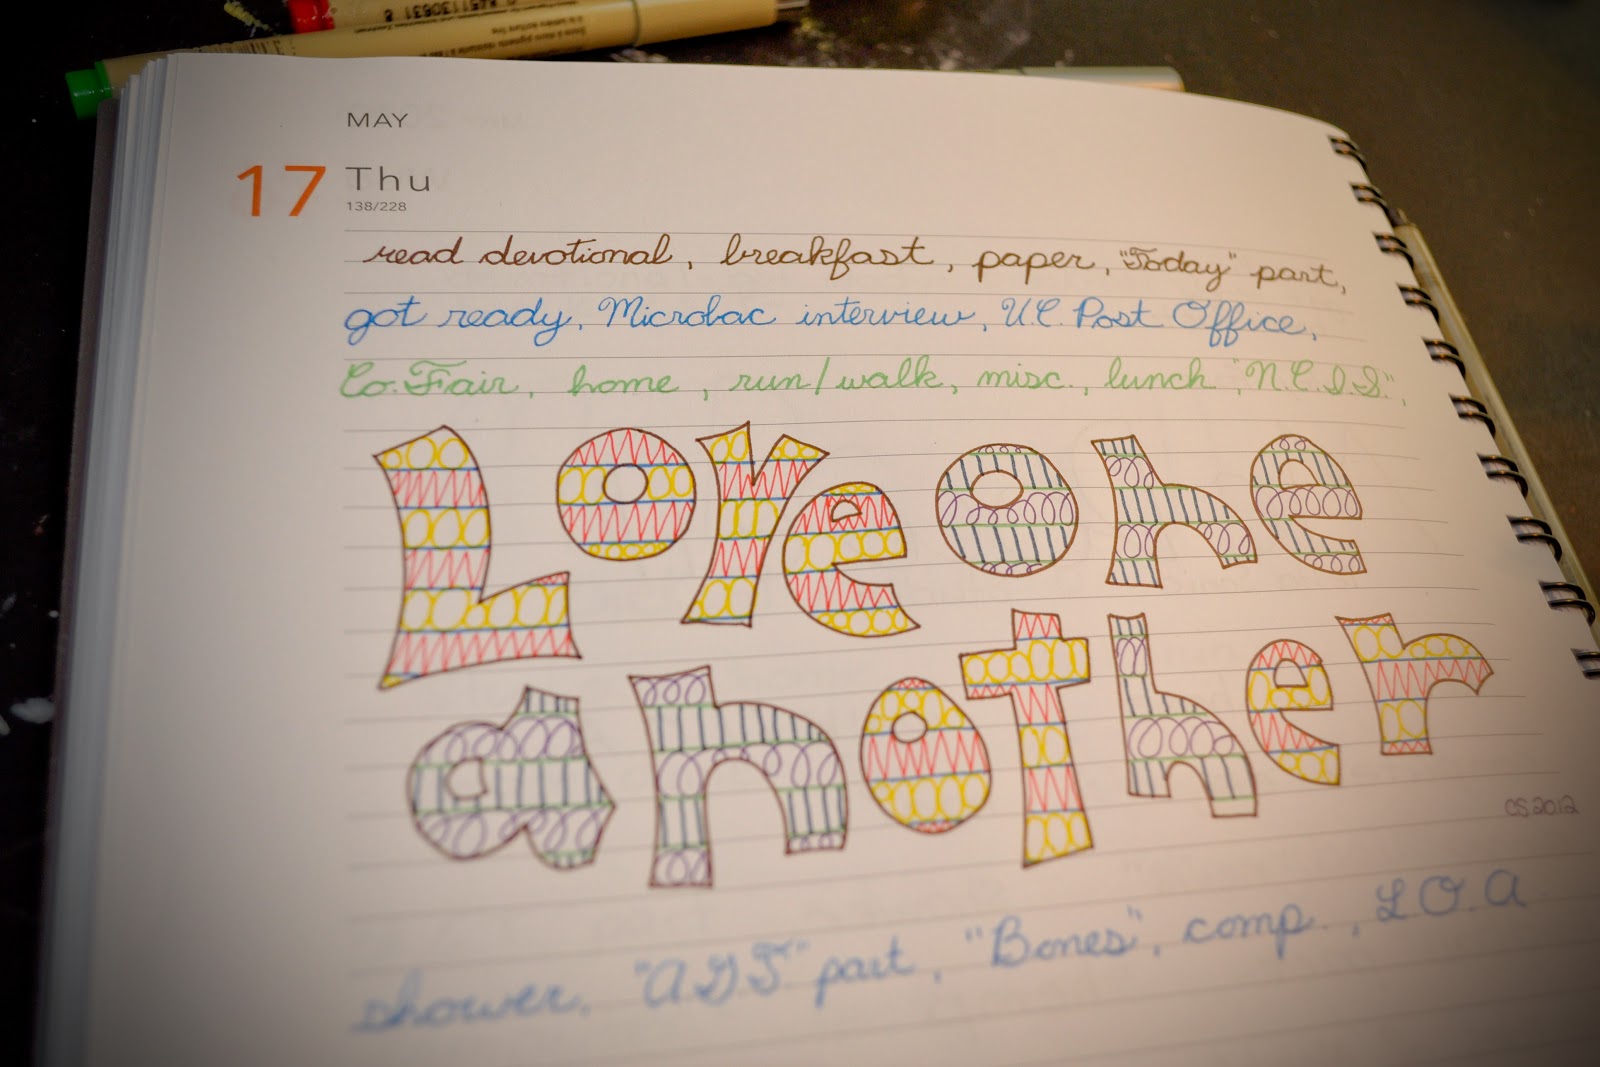 MAY
17 Thu
138/228
read devotional, breakfast, paper, "Today" part,
got ready, Microbac interview, U.C. Post Office,
Co. Fair, home, run/walk, misc., lunch "N.C.I.S.",
Love one
another
CS 2012
shower, "AGT" part, "Bones", comp., LOA